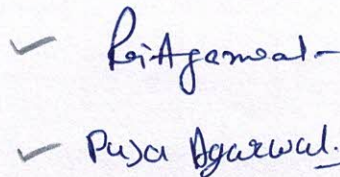 Raj Agarwal
Puja Agarwal.